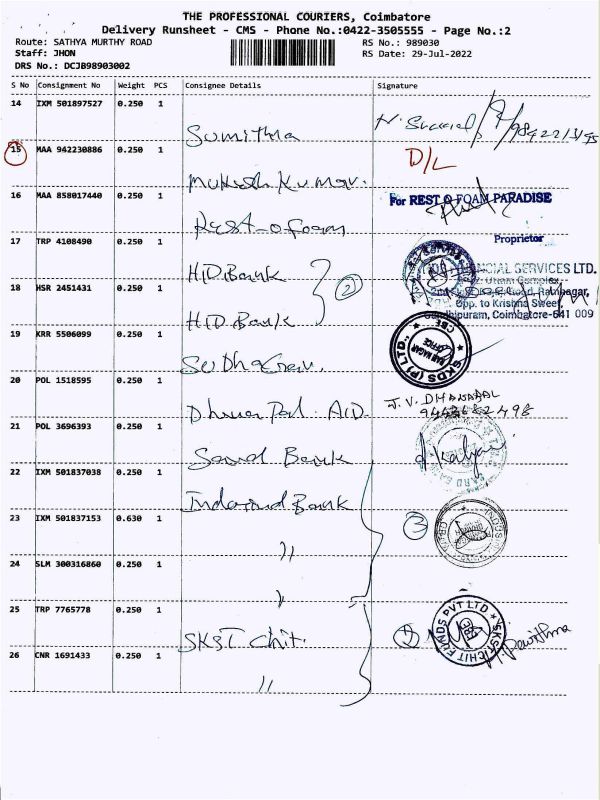 THE PROFESSIONAL COURIERS, Coimbatore
Delivery Runsheet - CMS - Phone No.:0422-3505555 - Page No.:2
Route: SATHYA MURTHY ROAD
RS No.: 989030
Staff: JHON
RS Date: 29-Jul-2022
DRS No.: DCJB98903002
S No Consignment No Weight PCS Consignee Details Signature
14 IXM 501897527 0.250 1
Sumithra
15 MAA 942230886 0.250 1
D/L
Mukesh Kumar.
16 MAA 858017440 0.250 1
For REST O FOAM PARADISE
Rest-o foam
Proprietor
17 TRP 4108490 0.250 1
HID Bank
FINANCIAL SERVICES LTD.
18 HSR 2451431 0.250 1
2
Opp. to Krishna Sweet,
HID Bank
Gandhipuram, Coimbatore-641 009
19 KRR 5506099 0.250 1
SKDS (P) LTD.,
RAM NAGAR
OFFICE
CBE
20 POL 1518595 0.250 1
J. V. DHANAPAL
Dhana Pal. AID.
21 POL 3696393 0.250 1
Bank
22 IXM 501837038 0.250 1
Indusind Bank
23 IXM 501837153 0.630 1
3
"
24 SLM 300316860 0.250 1
"
25 TRP 7765778 0.250 1
SKST Chit.
CHIT FUNDS PVT LTD
26 CNR 1691433 0.250 1
Pavithra
"